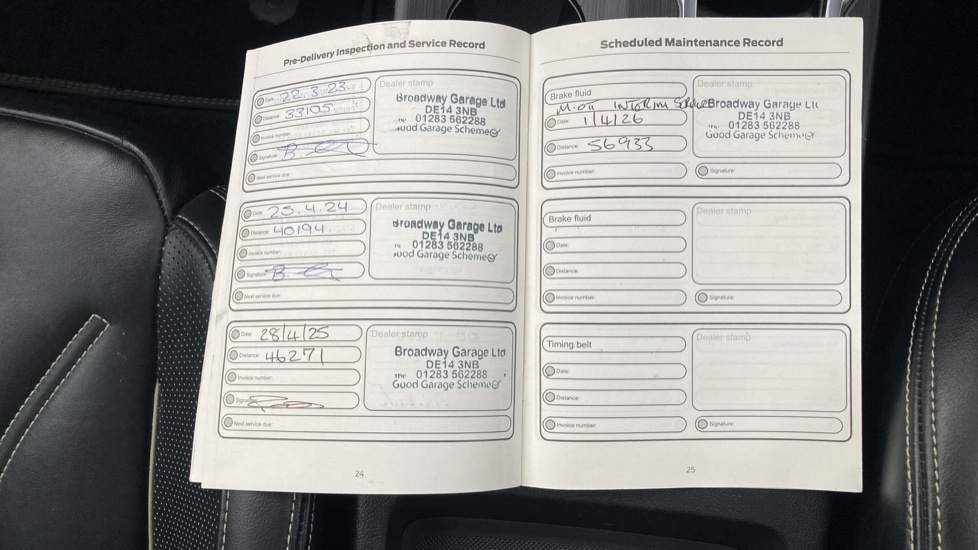 Pre-Delivery Inspection and Service Record
Date: 22.3.23.
Distance: 33105
Invoice number:
Signature:
Next service due:
Dealer stamp
Broadway Garage Ltd
DE14 3NB
01283 562288
Good Garage Scheme
Date: 25.4.24
Distance: 40194
Invoice number:
Signature:
Next service due:
Dealer stamp
Broadway Garage Ltd
DE14 3NB
01283 562288
Good Garage Scheme
Date: 28/4/25
Distance: 46271
Invoice number:
Signature:
Next service due:
Dealer stamp
Broadway Garage Ltd
DE14 3NB
01283 562288
Good Garage Scheme
24
Scheduled Maintenance Record
Brake fluid
INTERIM
Date: 1/4/26
Distance: 56933
Invoice number:
Dealer stamp
Broadway Garage Lt
DE14 3NB
01283 562288
Good Garage Scheme
Signature:
Brake fluid
Date:
Distance:
Invoice number:
Dealer stamp
Signature:
Timing belt
Date:
Distance:
Invoice number:
Dealer stamp
Signature:
25